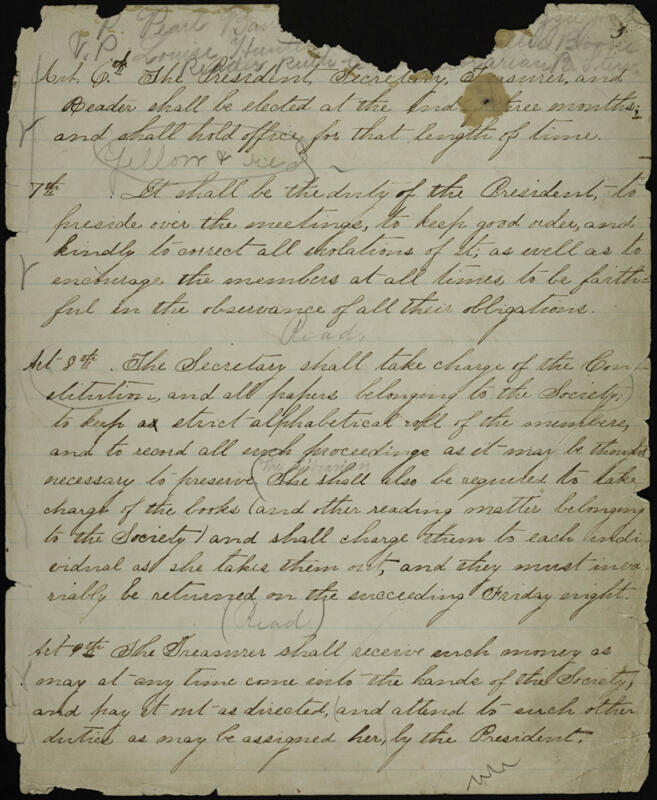 P. Pearl
3
V.P. Louise Hunt Boone
Reader Ruth Marian B.
Art. 6th The President, Secretary, Treasurer, and
Reader shall be elected at the end three months;
and shall hold office for that length of time.
Yellow & Red
7th. It shall be the duty of the President, to
preside over the meetings, to keep good order, and
kindly to correct all violations of it; as well as to
encourage the members at all times to be faith-
ful in the observance of all their obligations.
Read,
Art 8th. The Secretary shall take charge of the Con-
stitution, and all papers belonging to the Society;
to keep a strict alphabetical roll of the members,
and to record all such proceedings as it may be thought
The Librarian
necessary to preserve. (She shall also be required to take
charge of the books (and other reading matter belonging
to the Society) and shall charge them to each indi-
vidual as she takes them out, and they must inva-
riably be returned on the succeeding Friday night.
(Read)
Art 9th The Treasurer shall receive such money as
may at any time come into the hands of the Society,
and pay it out as directed, (and attend to such other
duties as may be assigned her, by the President.